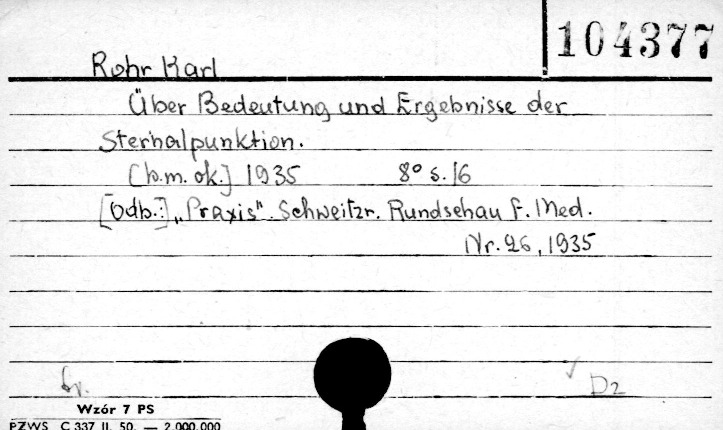 104377
Rohr Karl
Über Bedeutung und Ergebnisse der
Sternalpunktion.
[b.m. ok.] 1935 8° s. 16
[Odb.:] „Praxis". Schweitzr. Rundschau f. Med.
Nr. 26, 1935
D2
Wzór 7 PS
PZWS C 337 II. 50. — 2.000.000